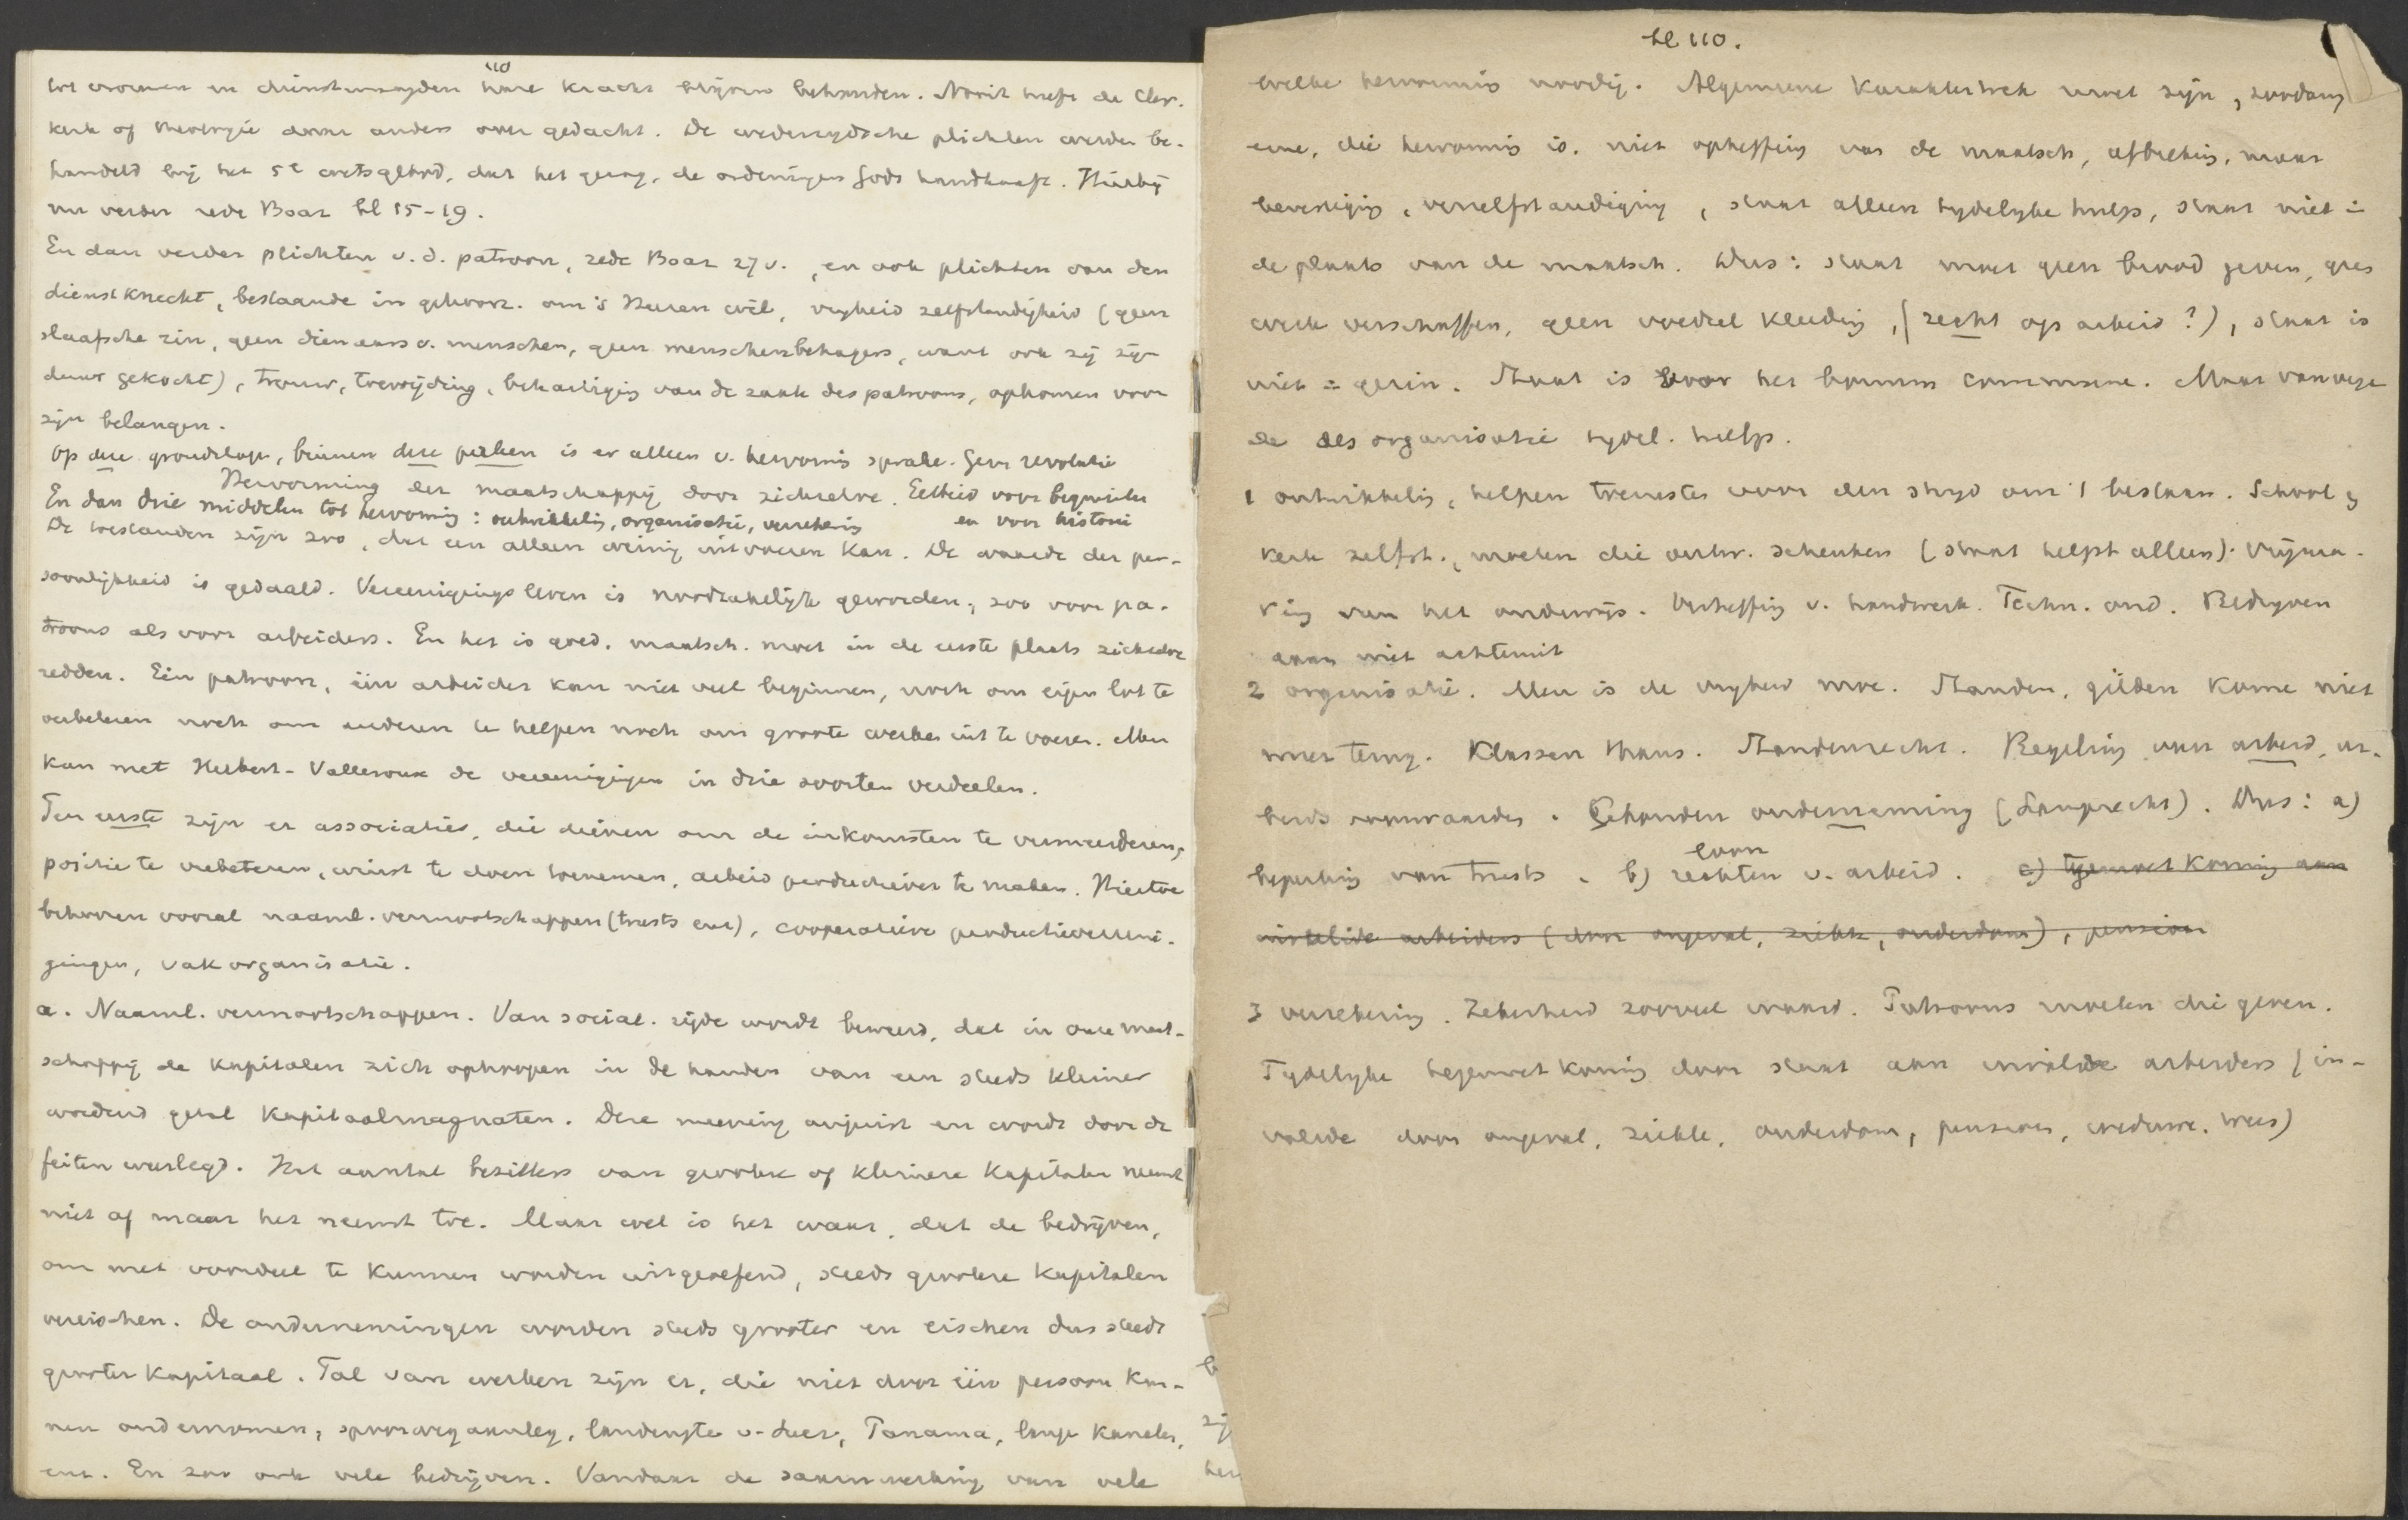 110
tot vrouwen en dienstmaagden hare kracht blijven behouden. Nooit heeft de Chr.
kerk of theologie daar anders over gedacht. De wederzijdsche plichten werden be-
handeld bij het 5e wetsgebod, dat het gezag, de ordeningen Gods handhaaft. Hierbij
nu verder rede Boaz bl 15-19.
En dan verder plichten v. d. patroon, rede Boaz 27 v., en ook plichten van den
dienstknecht, bestaande in gehoorz. om 's Heeren wil, vrijheid zelfstandigheid (geen
slaafsche zin, geen dienaars v. menschen, geen menschenbehagers, want ook zij zijn
duur gekocht), trouw, toewijding, behartiging van de zaak des patroons, opkomen voor
zijn belangen.
Op deze grondslage, binnen deze perken is er alleen v. hervormis sprake. Geen revolutie
Hervorming der maatschappij door zichzelve. Eerbied voor beginselen
En dan drie middelen tot hervorming: ontwikkeling, organisatie, verzekering en voor historie
De toestanden zijn zoo, dat een alleen weinig uitvoeren kan. De waarde der per-
soonlijkheid is gedaald. Vereenigingsleven is noodzakelijk geworden, zoo voor pa-
troons als voor arbeiders. En het is goed. maatsch. moet in de eerste plaats zichzelve
redden. Eén patroon, één arbeider kan niet veel beginnen, noch om eigen lot te
verbeteren noch om anderen te helpen noch om groote werken uit te voeren. Men
kan met Hubert-Valleroux de vereenigingen in drie soorten verdeelen.
Ten eerste zijn er associaties, die dienen om de inkomsten te vermeerderen,
positie te verbeteren, winst te doen toenemen, arbeid productiever te maken. Hiertoe
behooren vooral naaml. vennootschappen (trusts enz), cooperatieve productievereeni-
gingen, vakorganisatie.
a. Naaml. vennootschappen. Van social. zijde wordt beweerd, dat in onze maat-
schappij de kapitalen zich ophoopen in de handen van een steeds kleiner
wordend getal kapitaalmagnaten. Deze meening onjuist en wordt door de
feiten weerlegd. Het aantal bezitters van groote of kleinere kapitalen neemt
niet af maar het neemt toe. Maar wel is het waar, dat de bedrijven,
om met voordeel te kunnen worden uitgeoefend, steeds grootere kapitalen
vereischen. De ondernemingen worden steeds grooter en eischen dus steeds
grooter kapitaal. Tal van werken zijn er, die niet door één persoon kun-
nen ondernomen, spoorwegaanleg, Panama, lange kanalen,
enz. En zoo ook vele bedrijven. Vandaar de samenwerking van vele
bl 110.
welke hervormis noodig. Algemeene karaktertrek moet zijn, zoodanig
eene, die hervormis is. niet opheffing van de maatsch, afbreking, maar
bevestiging, verzelfstandiging, staat alleen tydelyke hulp, staat niet =
de plaats van de maatsch. Dus: staat moet geen brood geven, geen
werk verschaffen, geen voedsel kleeding, (recht op arbeid?), staat is
niet = gezin. Staat is voor het bonum commune. Maar vanwege
de desorganisatie tydel. hulp.
1 ontwikkeling, helpen toerusten voor den stryd om 't bestaan. School en
kerk zelfst., moeten die ontw. schenken (staat helpt alleen). Vrijma-
king van het onderwijs. Verheffing v. handwerk. Techn. ond. Bedryven
gaan niet achteruit
2 organisatie. Men is de vryheid moe. Standen, gilden kome niet
meer terug. Klassen thans. Standenrecht. Regeling van arbeid, ar-
beids voorwaarden. Gebonden onderneming (Lamprecht). Dus: a)
beperking van trusts. b) loon rechten v. arbeid. c) tegemoetkoming aan
invalide arbeiders (door ongeval, ziekte, ouderdom), pension
3 verzekering. Zekerheid zooveel waard. Patroons moeten die geven.
Tydelyke tegemoetkoming door staat aan invalide arbeiders (in-
valide door ongeval, ziekte, ouderdom, pensioen, weduwe. wees)